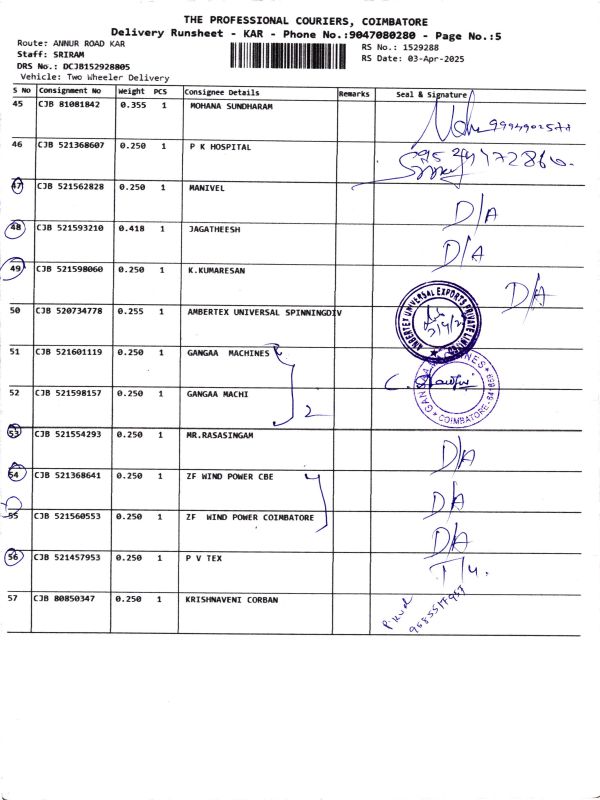 THE PROFESSIONAL COURIERS, COIMBATORE
Delivery Runsheet - KAR - Phone No.:9047080280 - Page No.:5
Route: ANNUR ROAD KAR
RS No.: 1529288
Staff: SRIRAM
RS Date: 03-Apr-2025
DRS No.: DCJB152928805
Vehicle: Two Wheeler Delivery
S No Consignment No Weight PCS Consignee Details Remarks Seal & Signature
45 CJB 81081842 0.355 1 MOHANA SUNDHARAM
46 CJB 521368607 0.250 1 P K HOSPITAL
47 CJB 521562828 0.250 1 MANIVEL D/A
48 CJB 521593210 0.418 1 JAGATHEESH D/A
49 CJB 521598060 0.250 1 K.KUMARESAN D/A
50 CJB 520734778 0.255 1 AMBERTEX UNIVERSAL SPINNINGDIV
AMBERTEX UNIVERSAL EXPORTS PRIVATE LIMITED
51 CJB 521601119 0.250 1 GANGAA MACHINES
52 CJB 521598157 0.250 1 GANGAA MACHI 2
GANGAA MACHINES COIMBATORE
53 CJB 521554293 0.250 1 MR.RASASINGAM D/A
54 CJB 521368641 0.250 1 ZF WIND POWER CBE D/A
55 CJB 521560553 0.250 1 ZF WIND POWER COIMBATORE D/A
56 CJB 521457953 0.250 1 P V TEX
57 CJB 80850347 0.250 1 KRISHNAVENI CORBAN